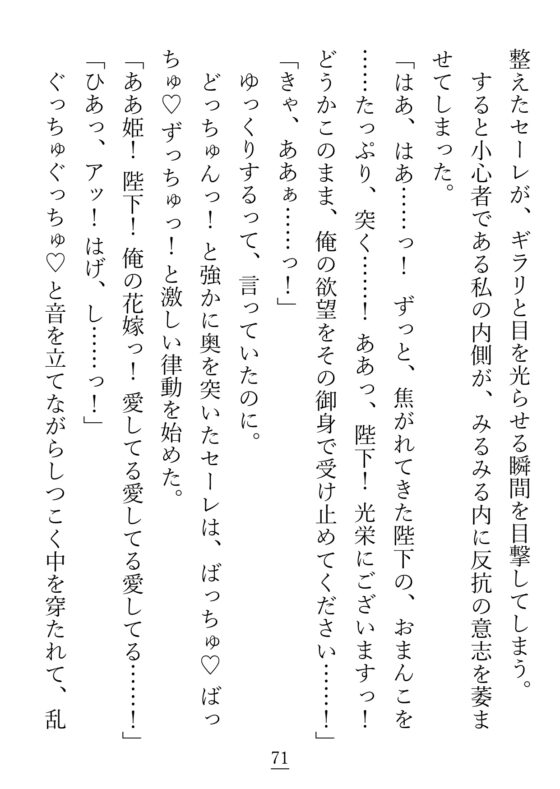 整えたセーレが、ギラリと目を光らせる瞬間を目撃してしまう。
すると小心者である私の内側が、みるみる内に反抗の意志を萎ま
せてしまった。
「はあ、はあ……っ！　ずっと、焦がれてきた陛下の、おまんこを
……たっぷり、突く……！ ああっ、陛下！ 光栄にございますっ！
どうかこのまま、俺の欲望をその御身で受け止めてください……！」
「きゃ、ああぁ……っ！」
ゆっくりするって、言っていたのに。
どっちゅんっ！ と強かに奥を突いたセーレは、ばっちゅ♡ ばっ
ちゅ♡ ずっちゅっ！ と激しい律動を始めた。
「ああ姫！ 陛下！ 俺の花嫁っ！ 愛してる愛してる愛してる……！」
「ひあっ、アッ！ はげ、し……っ！」
ぐっちゅぐっちゅ♡ と音を立てながらしつこく中を穿たれて、乱
71